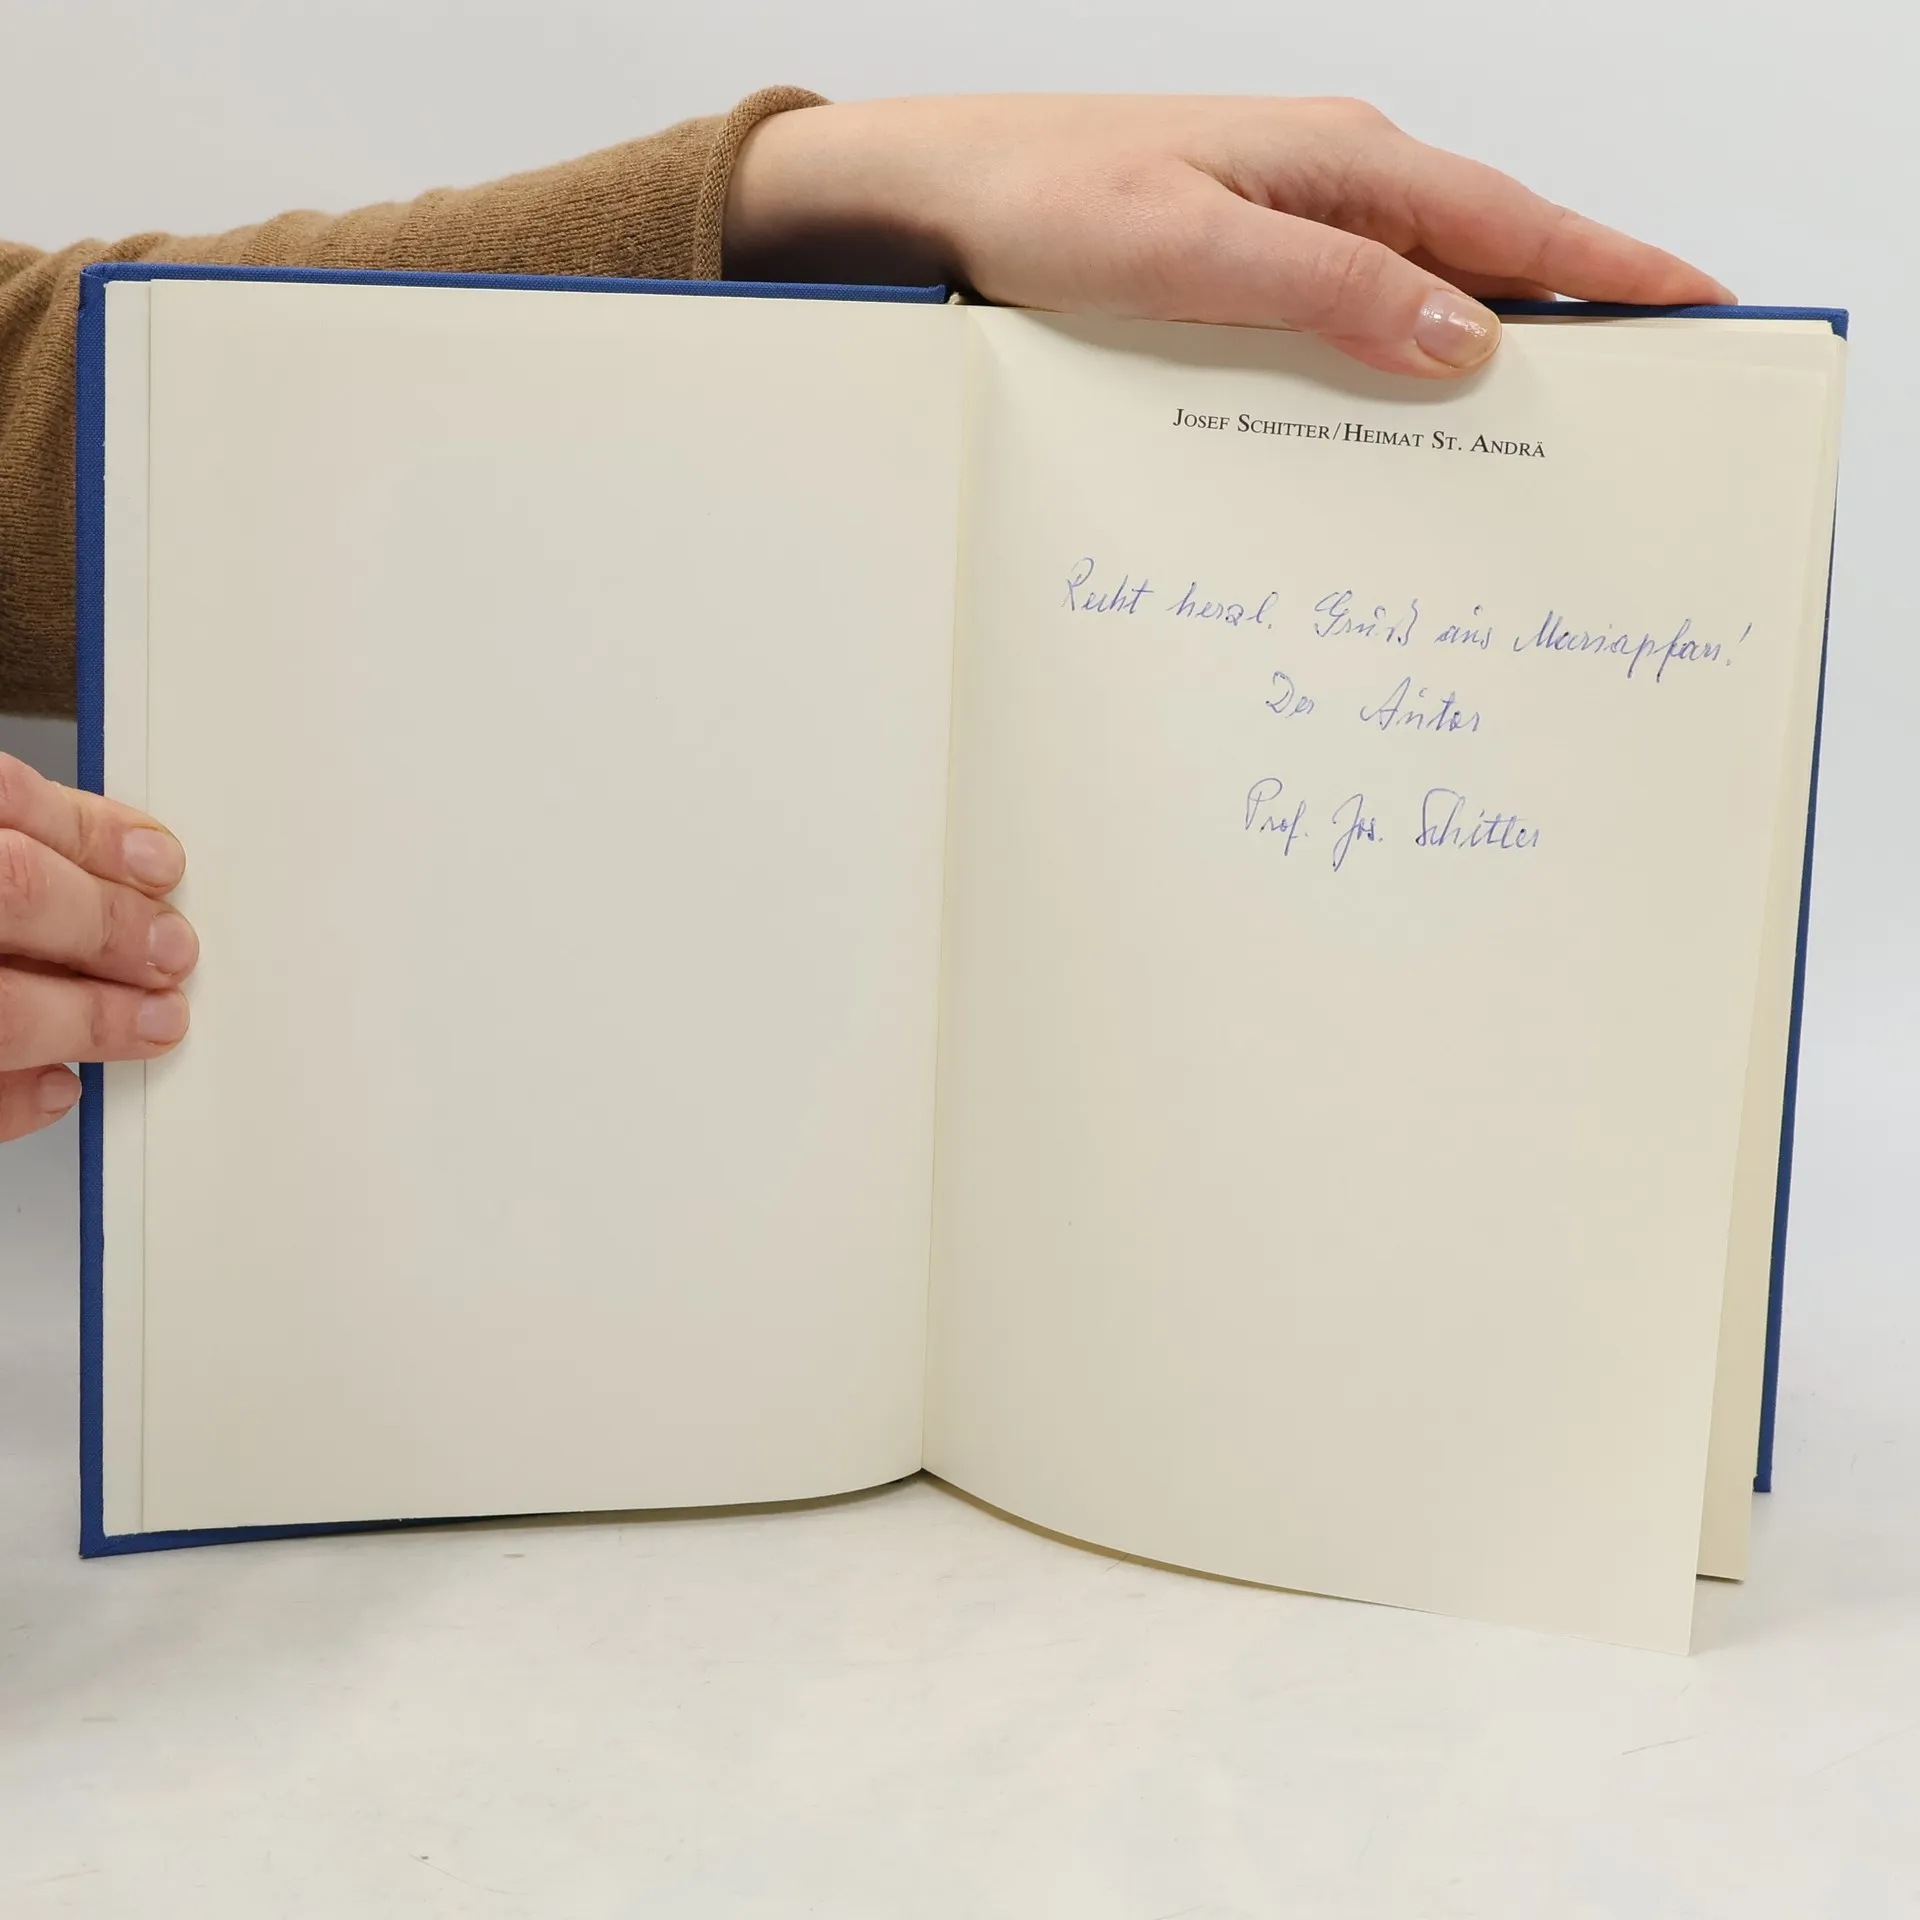 JOSEF SCHITTER/HEIMAT ST. ANDRÄ
Recht herzl. Gruß aus Mariapfarr!
Der Autor
Prof. Jos. Schitter